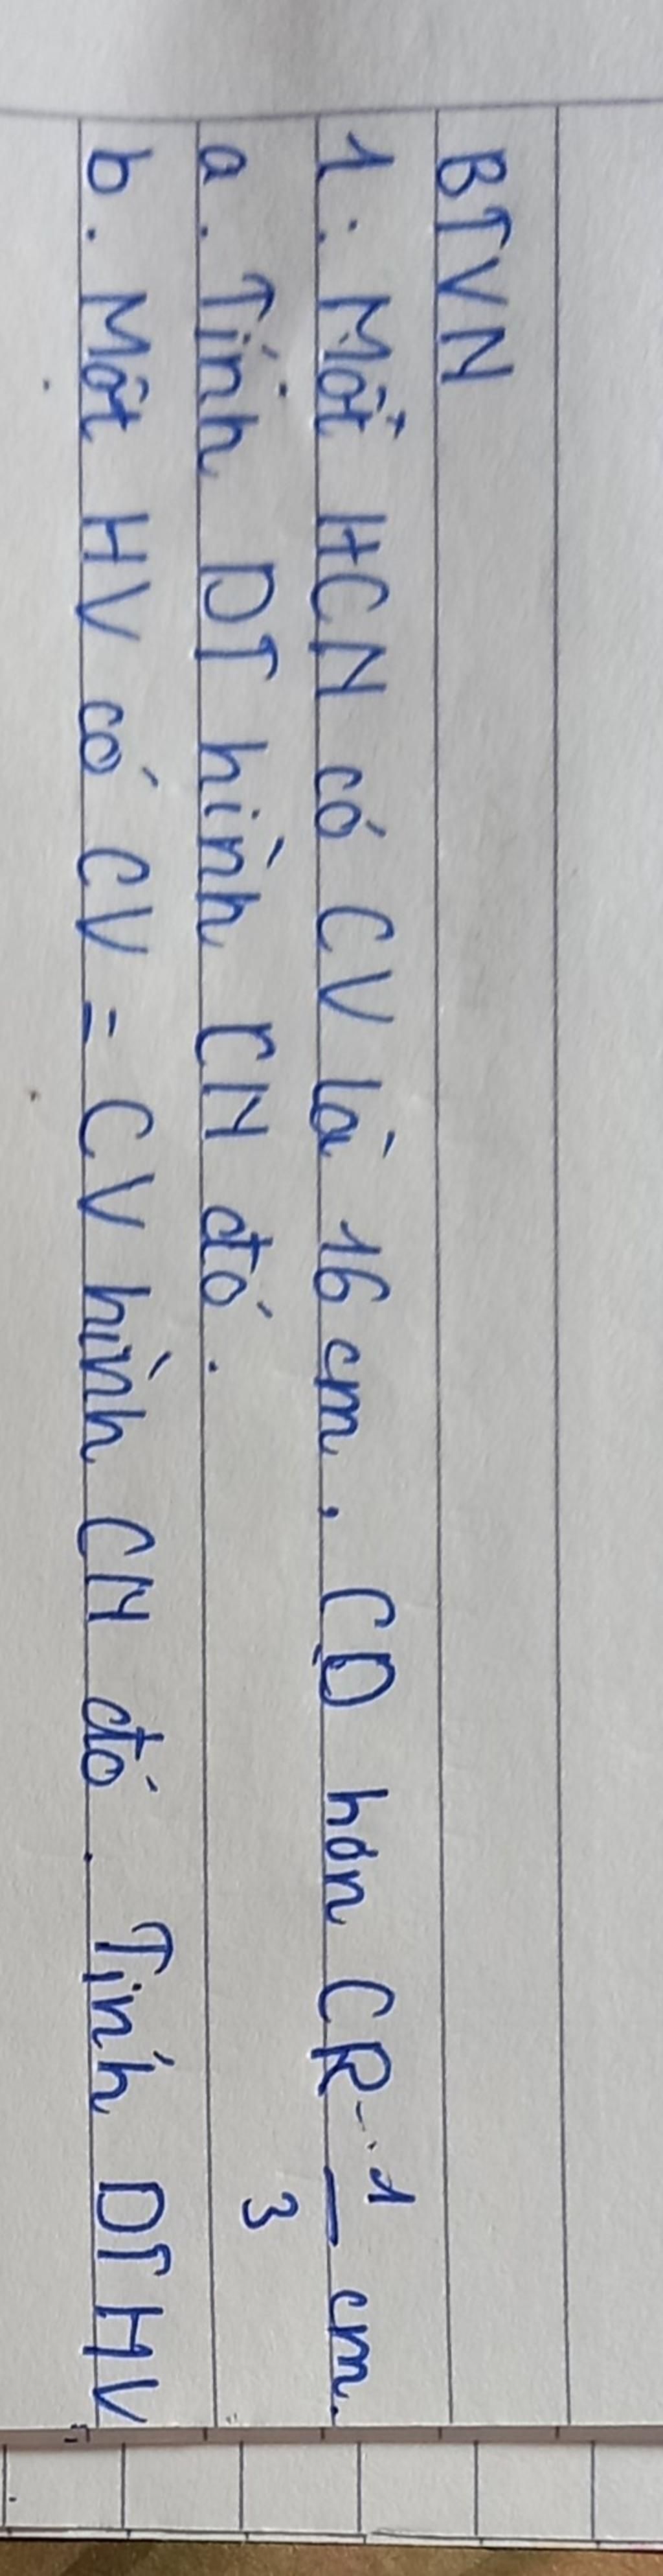 BTVN
1. Một HCN có CV là 16 cm, CD hơn CR 1/3 cm.
a. Tính DT hình CN đó.
b. Một HV có CV = CV hình CN đó. Tính DT HV